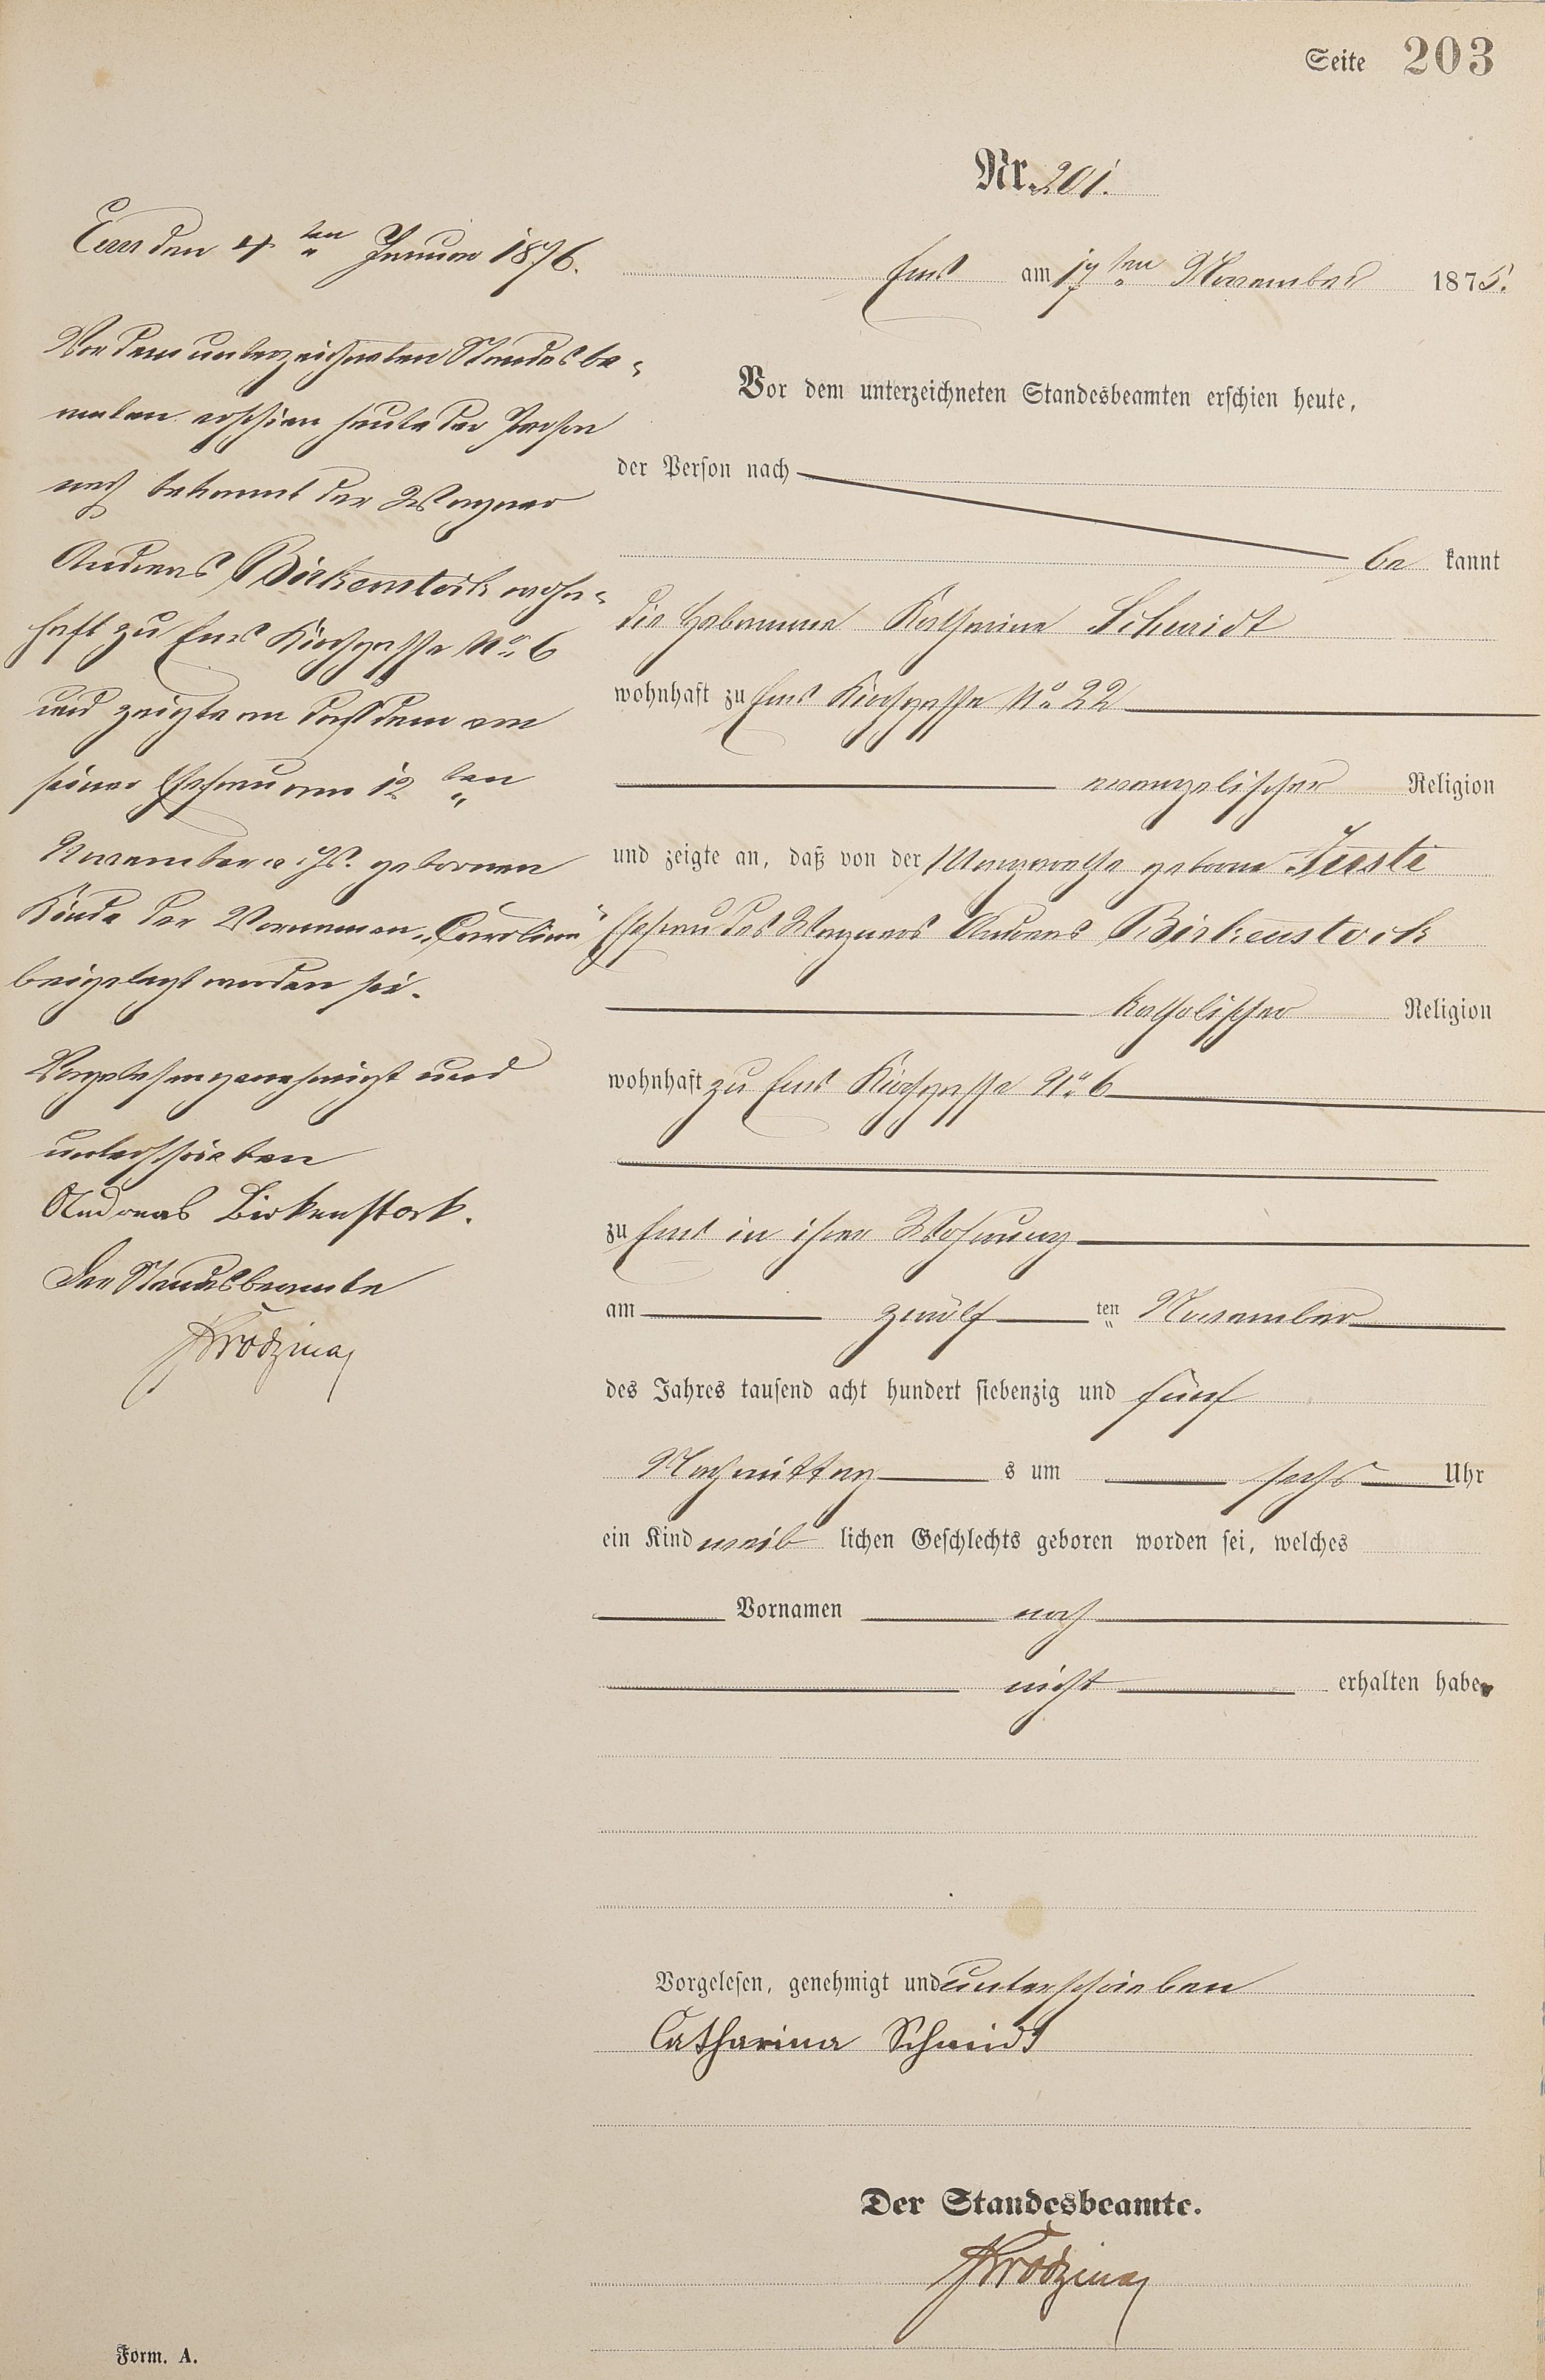 Seite 203
Nr. 201.
Ems am 17ten November 1875.
Vor dem unterzeichneten Standesbeamten erschien heute,
der Person nach
be kannt
die Hebamme Katharina Schmidt
wohnhaft zu Ems Kirchgasse No 22
evangelischer Religion
und zeigte an, daß von der Margarethe geborne Juste
Ehefrau des Wagners Andreas Birkenstock
katholischer Religion
wohnhaft zu Ems Kirchgasse No 6
zu Ems in ihrer Wohnung
am zwölf ten November
des Jahres tausend acht hundert siebenzig und fünf
Nachmittag s um sechs Uhr
ein Kind weib lichen Geschlechts geboren worden sei, welches
Vornamen noch
nicht erhalten habe
Vorgelesen, genehmigt und unterschrieben
Catharina Schmidt
Der Standesbeamte.
Ems den 4ten Januar 1876.
Vor dem unterzeichneten Standesbe-
amten erschien heute der Person
nach bekannt der Wagner
Andreas Birkenstock wohn-
haft zu Ems Kirchgasse No 6
und zeigte an daß dem von
seiner Ehefrau am 12ten
November v. Js. gebornen
Kinde der Vornamen „Caroline“
beigelegt worden sei.
Vorgelesen genehmigt und
unterschrieben
Andreas Birkenstock.
Der Standesbeamte
Form. A.